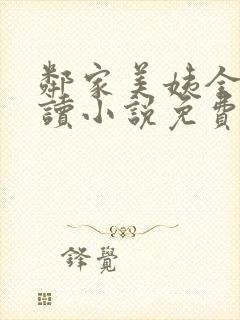 鄰家美姨全
讀小說免費
鋒覺